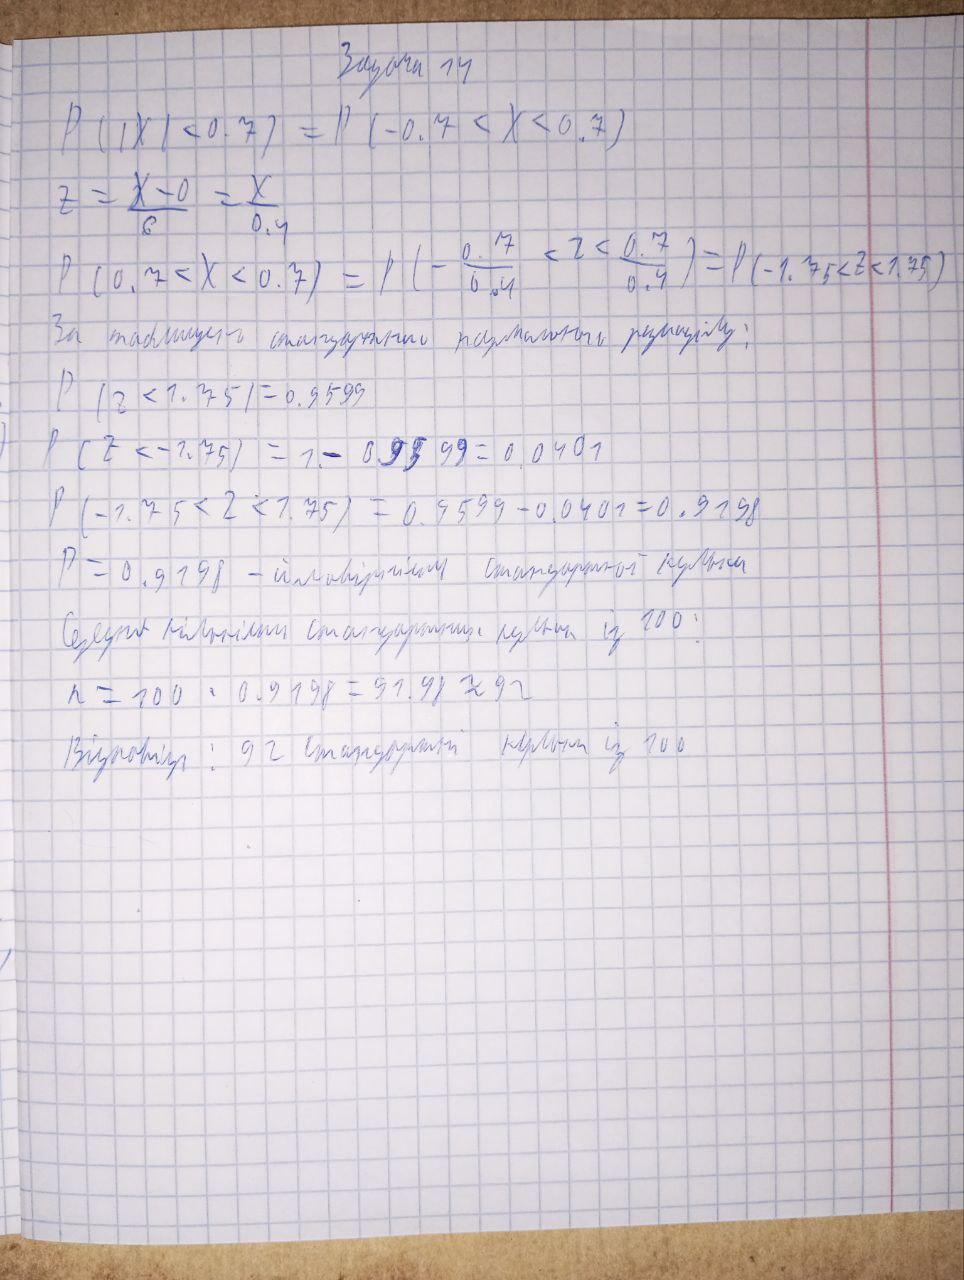 Задача 14
P (|X| < 0.7) = P (-0.7 < X < 0.7)
Z = X-0/б = X/0.4
P (0.7 < X < 0.7) = P (-0.7/0.4 < Z < 0.7/0.4) = P (-1.75 < Z < 1.75)
За таблицею стандартного нормального розподілу:
P (Z < 1.75) = 0.9599
P (Z < -1.75) = 1 - 0.9599 = 0.0401
P (-1.75 < Z < 1.75) = 0.9599 - 0.0401 = 0.9198
P = 0.9198 - ймовірність стандартної кульки
Середня кількість стандартних кульок із 100:
n = 100 · 0.9198 = 91.98 ≈ 92
Відповідь: 92 стандартні кульки із 100